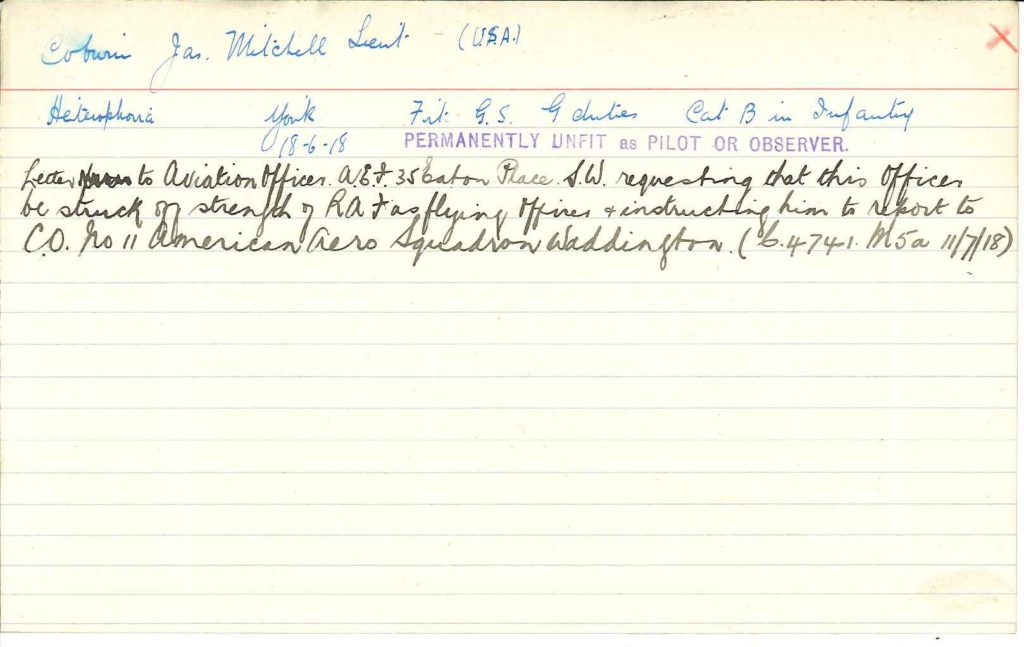 Coburn Jas. Mitchell Lieut - (U.S.A.)
Heterophoria York Fit G.S. G duties Cat B in Infantry
18-6-18 PERMANENTLY UNFIT as PILOT OR OBSERVER.
Letter to Aviation Officer. A.E.F. 35 Eaton Place. S.W. requesting that this Officer
be struck off strength of R.A.F as flying Officer & instructing him to report to
C.O. No 11 American Aero Squadron Waddington. (C.4741. M5a 11/7/18)